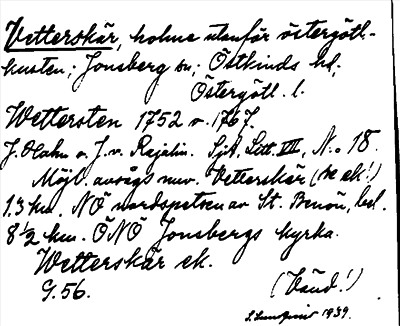 Vetterskär, holme utanför östergötl.-
kusten; Jonsberg sn; Östkinds hd,
Östergötl. l.
Wettersten 1752 o. 1767.
J. Hahn o. J. v. Rajalin. Sjk, Litt. VIII. N:o 18.
Möjl. avsågs nuv. Vetterskär (se ek!)
1.3 km. NÖ nordspetsen av St. Benön, bel.
8 1/2 km. ÖNÖ Jonsbergs kyrka.
Wetterskär ek.
G. 56.
(Vänd!)
1939.